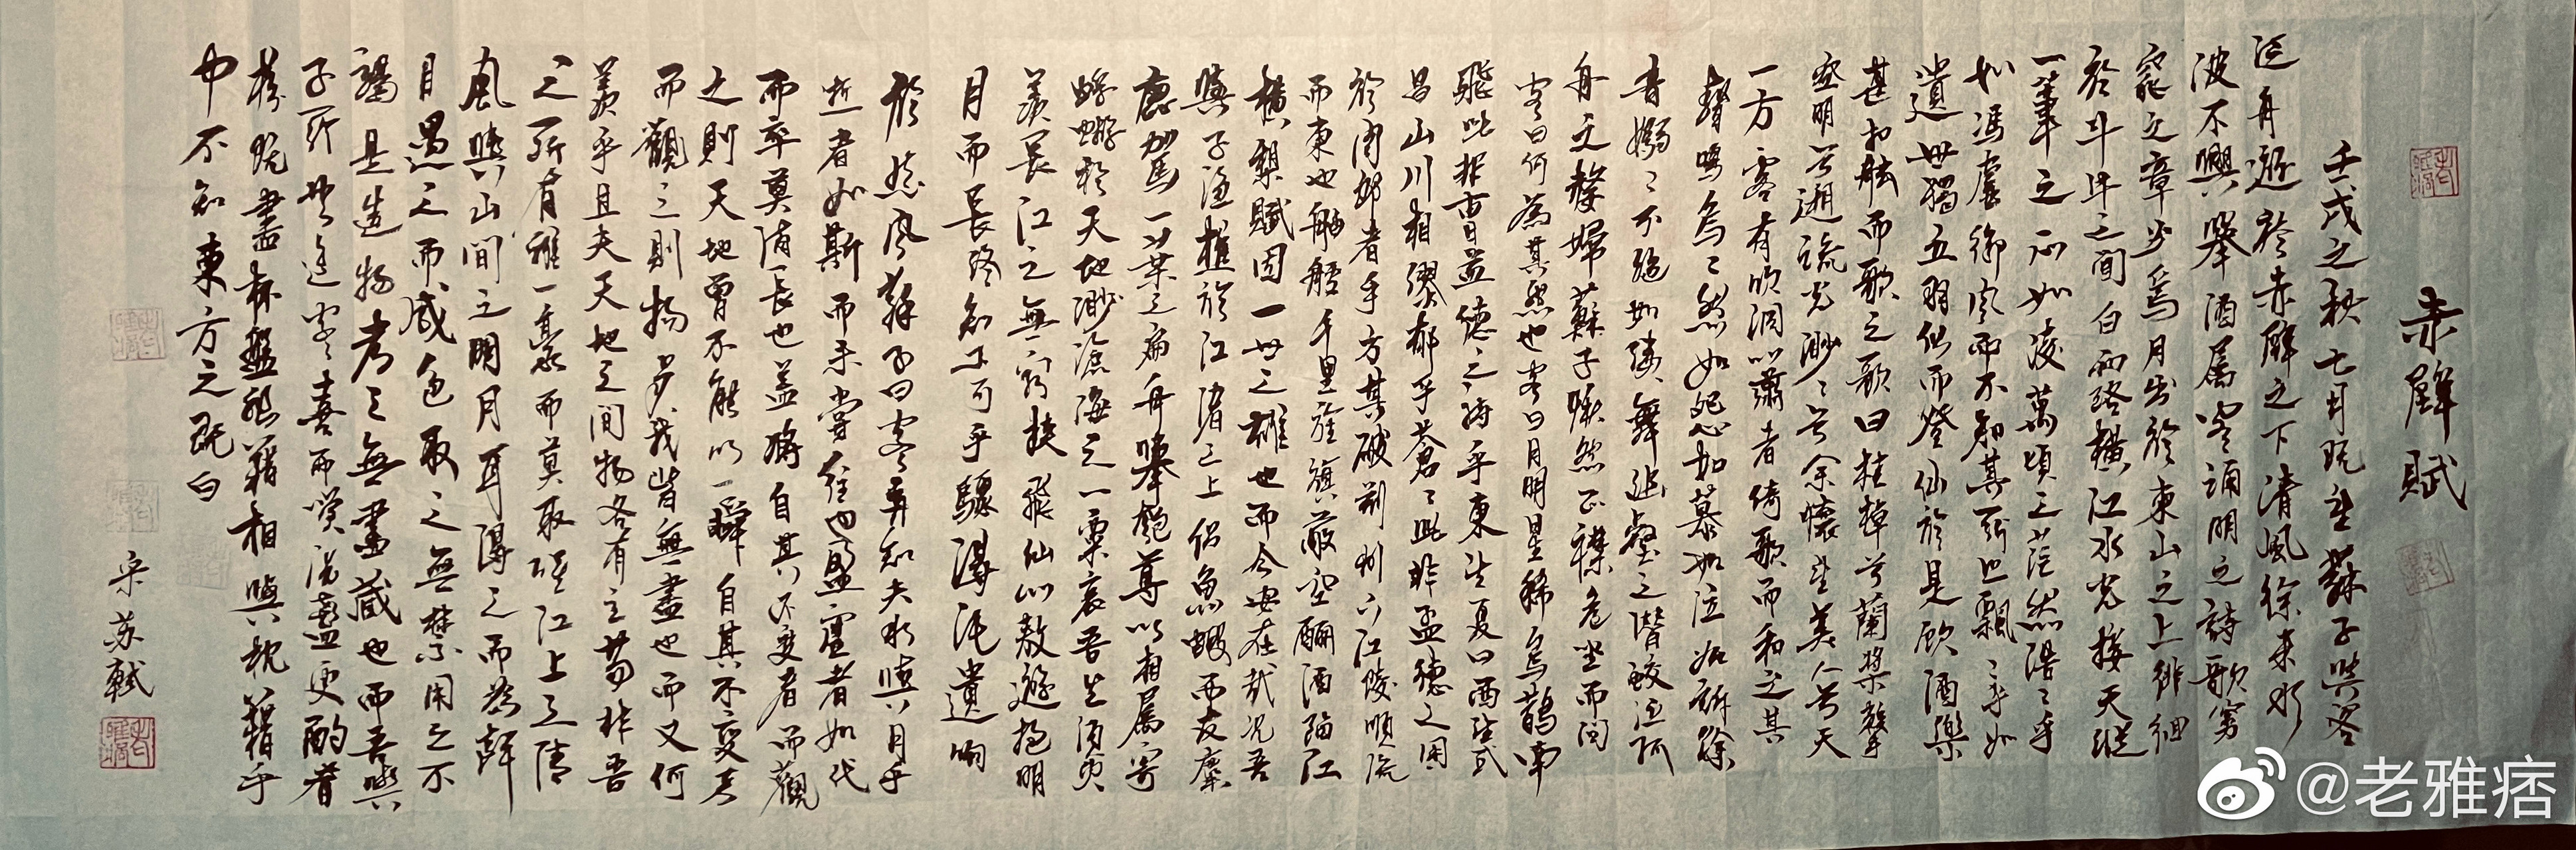 赤壁賦
壬戌之秋七月既望蘇子與客
泛舟遊於赤壁之下清風徐來水
波不興舉酒屬客誦明之詩歌窈
窕之章少焉月出於東山之上徘徊
於斗牛之間白露橫江水光接天縱
一葦之所如凌萬頃之茫然浩浩乎
如馮虛御風而不知其所止飄飄乎如
遺世獨立羽化而登仙於是飲酒樂
甚扣舷而歌之歌曰桂棹兮蘭槳擊
空明兮遡流光渺渺兮余懷望美人兮天
一方客有吹洞簫者倚歌而和之其
聲嗚嗚然如怨如慕如泣如訴餘
音嫋嫋不絕如縷舞幽壑之潛蛟泣孤
舟之嫠婦蘇子愀然正襟危坐而問
客曰何為其然也客曰月明星稀烏鵲南
飛此非曹孟德之詩乎東望夏口西望武
昌山川相繆郁乎蒼蒼此非孟德之困
於周郎者乎方其破荊州下江陵順流
而東也舳艫千里旌旗蔽空釃酒臨江
橫槊賦固一世之雄也而今安在哉況吾
與子漁樵於江渚之上侶魚蝦而友麋
鹿駕一葉之扁舟舉匏尊以相屬寄
蜉蝣於天地渺滄海之一粟哀吾生須臾
羨長江之無窮挾飛仙以遨遊抱明
月而長終知不可乎驟得託遺響
於悲風蘇子曰客亦知夫水與月乎
逝者如斯而未嘗往也盈虛者如代
而卒莫消長也蓋將自其不變者而觀
之則天地曾不能以一瞬自其不變者
而觀之則物與我皆無盡也而又何
羨乎且夫天地之間物各有主苟非吾
之所有雖一毫而莫取惟江上之清
風與山間之明月耳得之而為聲
目遇之而成色取之無禁用之不
竭是造物者之無盡藏也而吾與
子所共適客喜而笑洗盞更酌肴
核既盡杯盤狼籍相與枕籍乎
中不知東方之既白
宋苏軾
@老雅痞